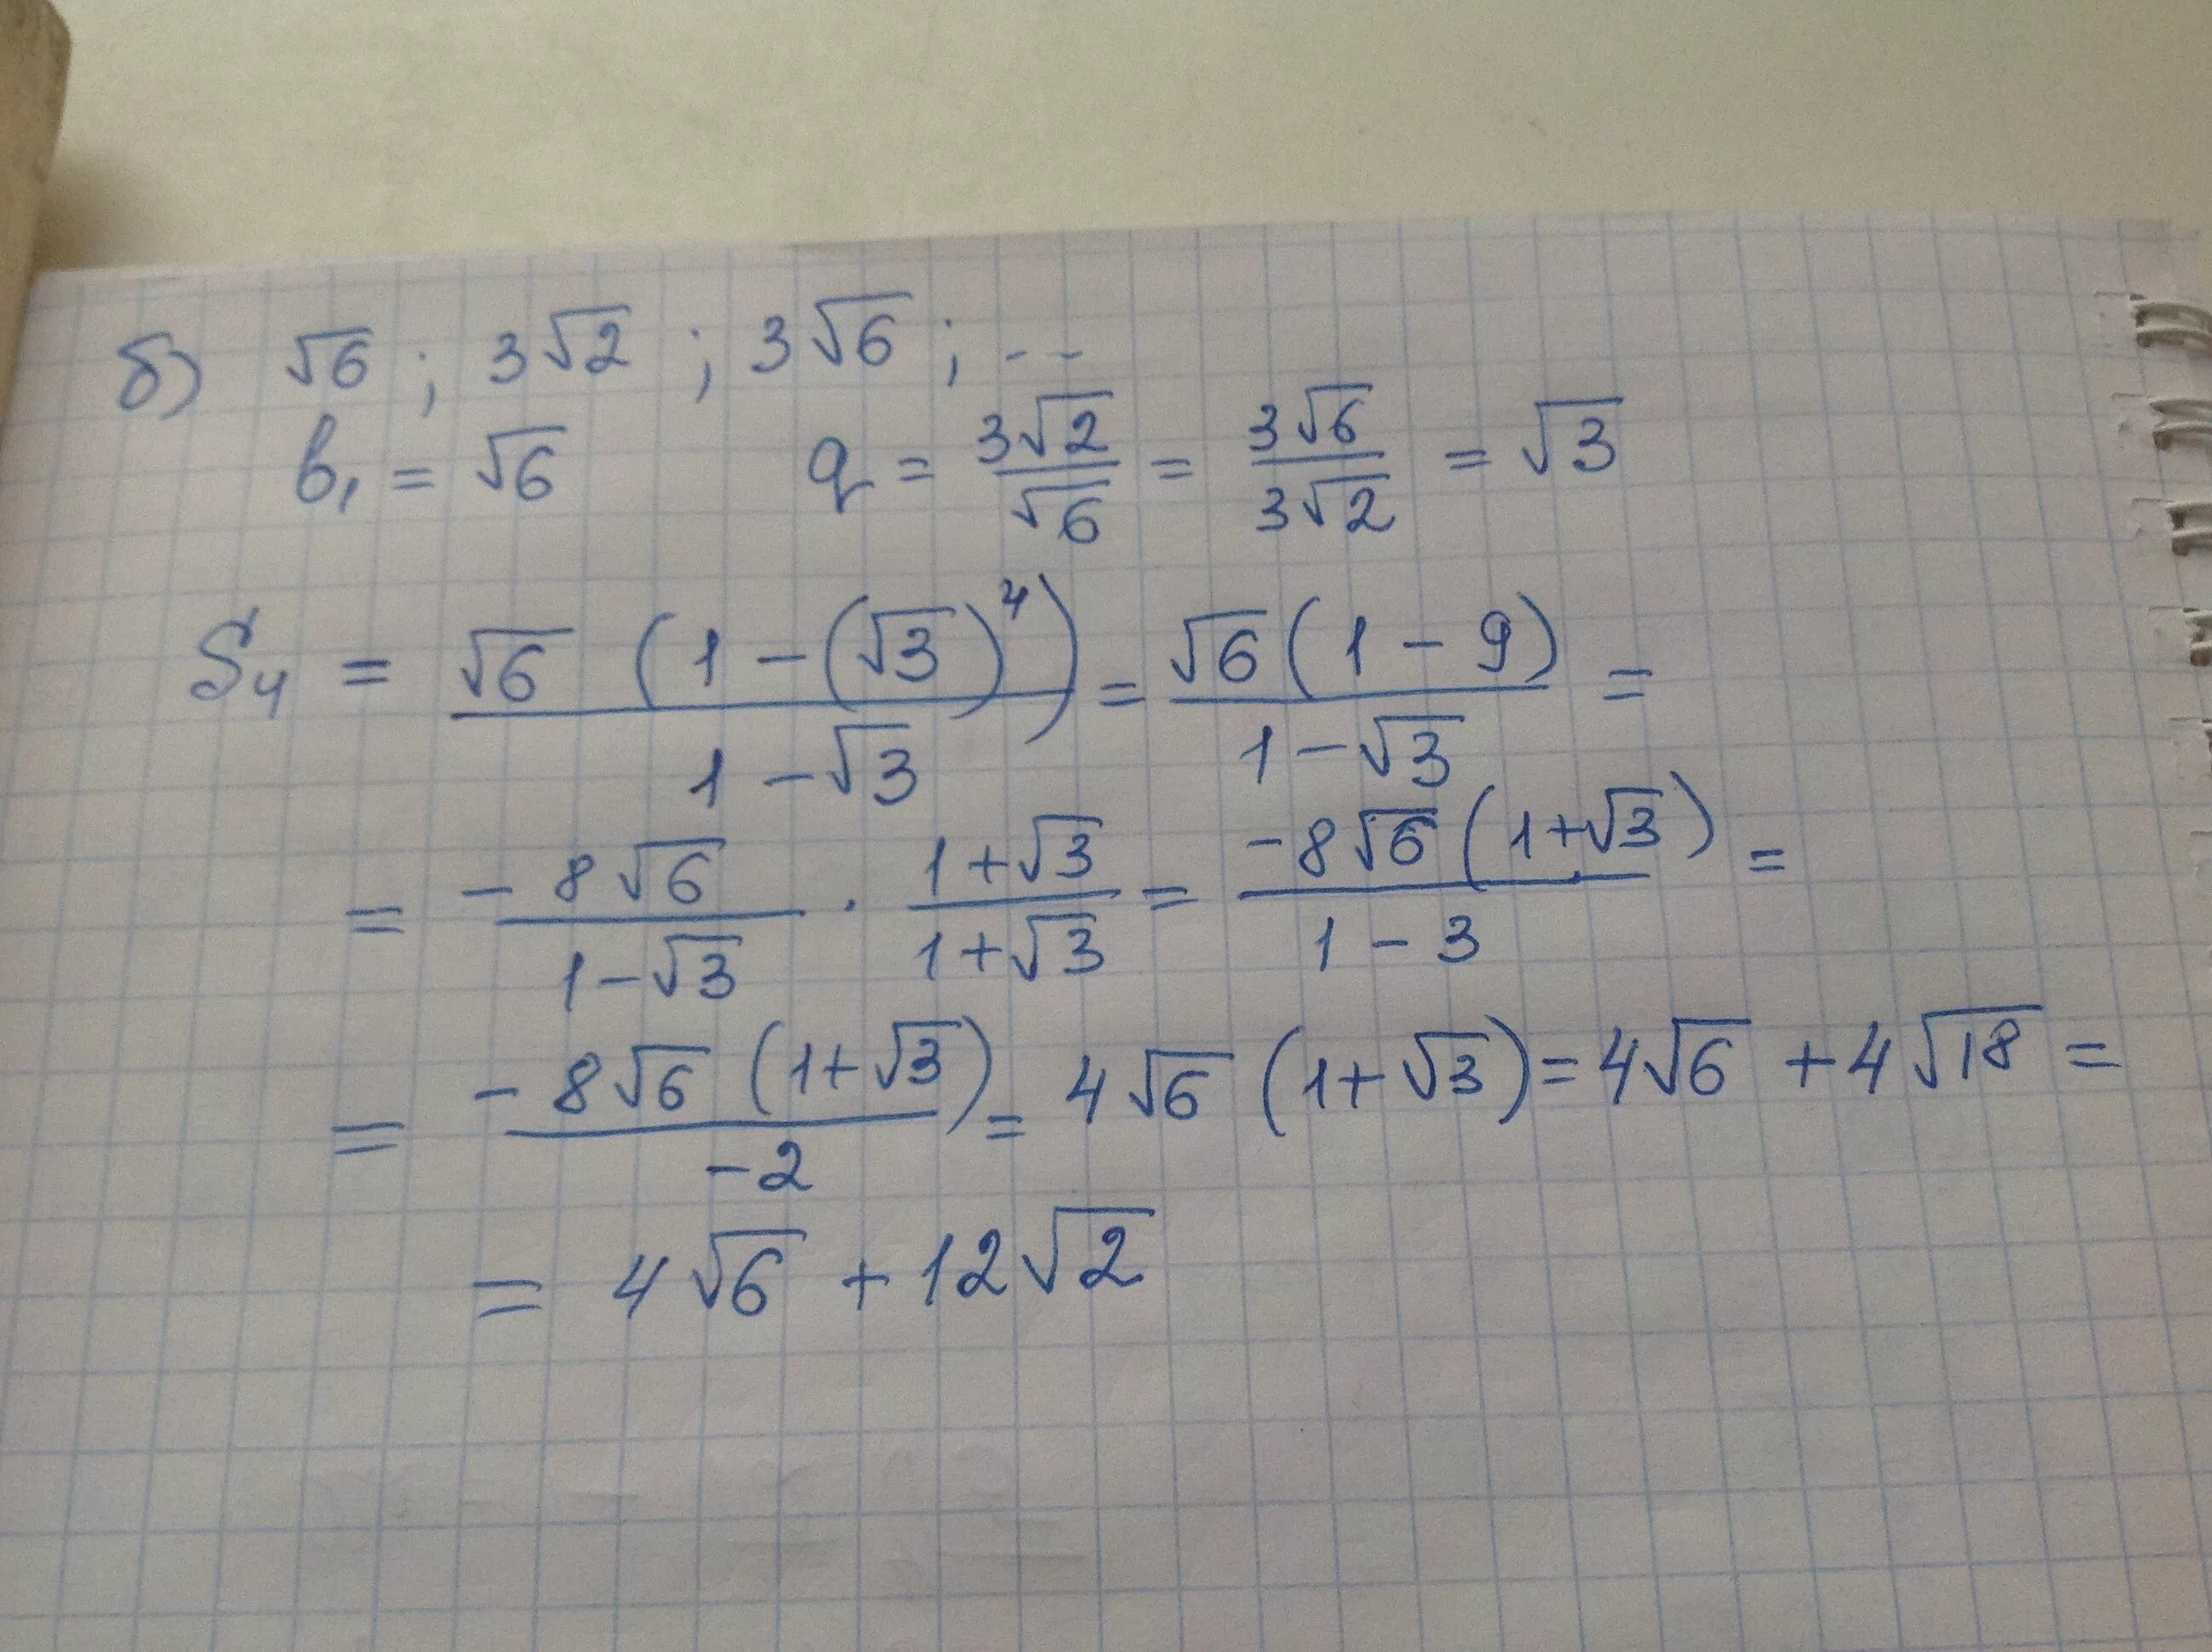 б) √6 ; 3√2 ; 3√6 ; ...
b₁ = √6 q = 3√2/√6 = 3√6/3√2 = √3
S₄ = √6 (1 - (√3)⁴)/1 - √3 = √6 (1 - 9)/1 - √3 =
= - 8√6/1 - √3 · 1 + √3/1 + √3 = -8√6 (1 + √3)/1 - 3 =
= - 8√6 (1 + √3)/-2 = 4√6 (1 + √3) = 4√6 + 4√18 =
= 4√6 + 12√2